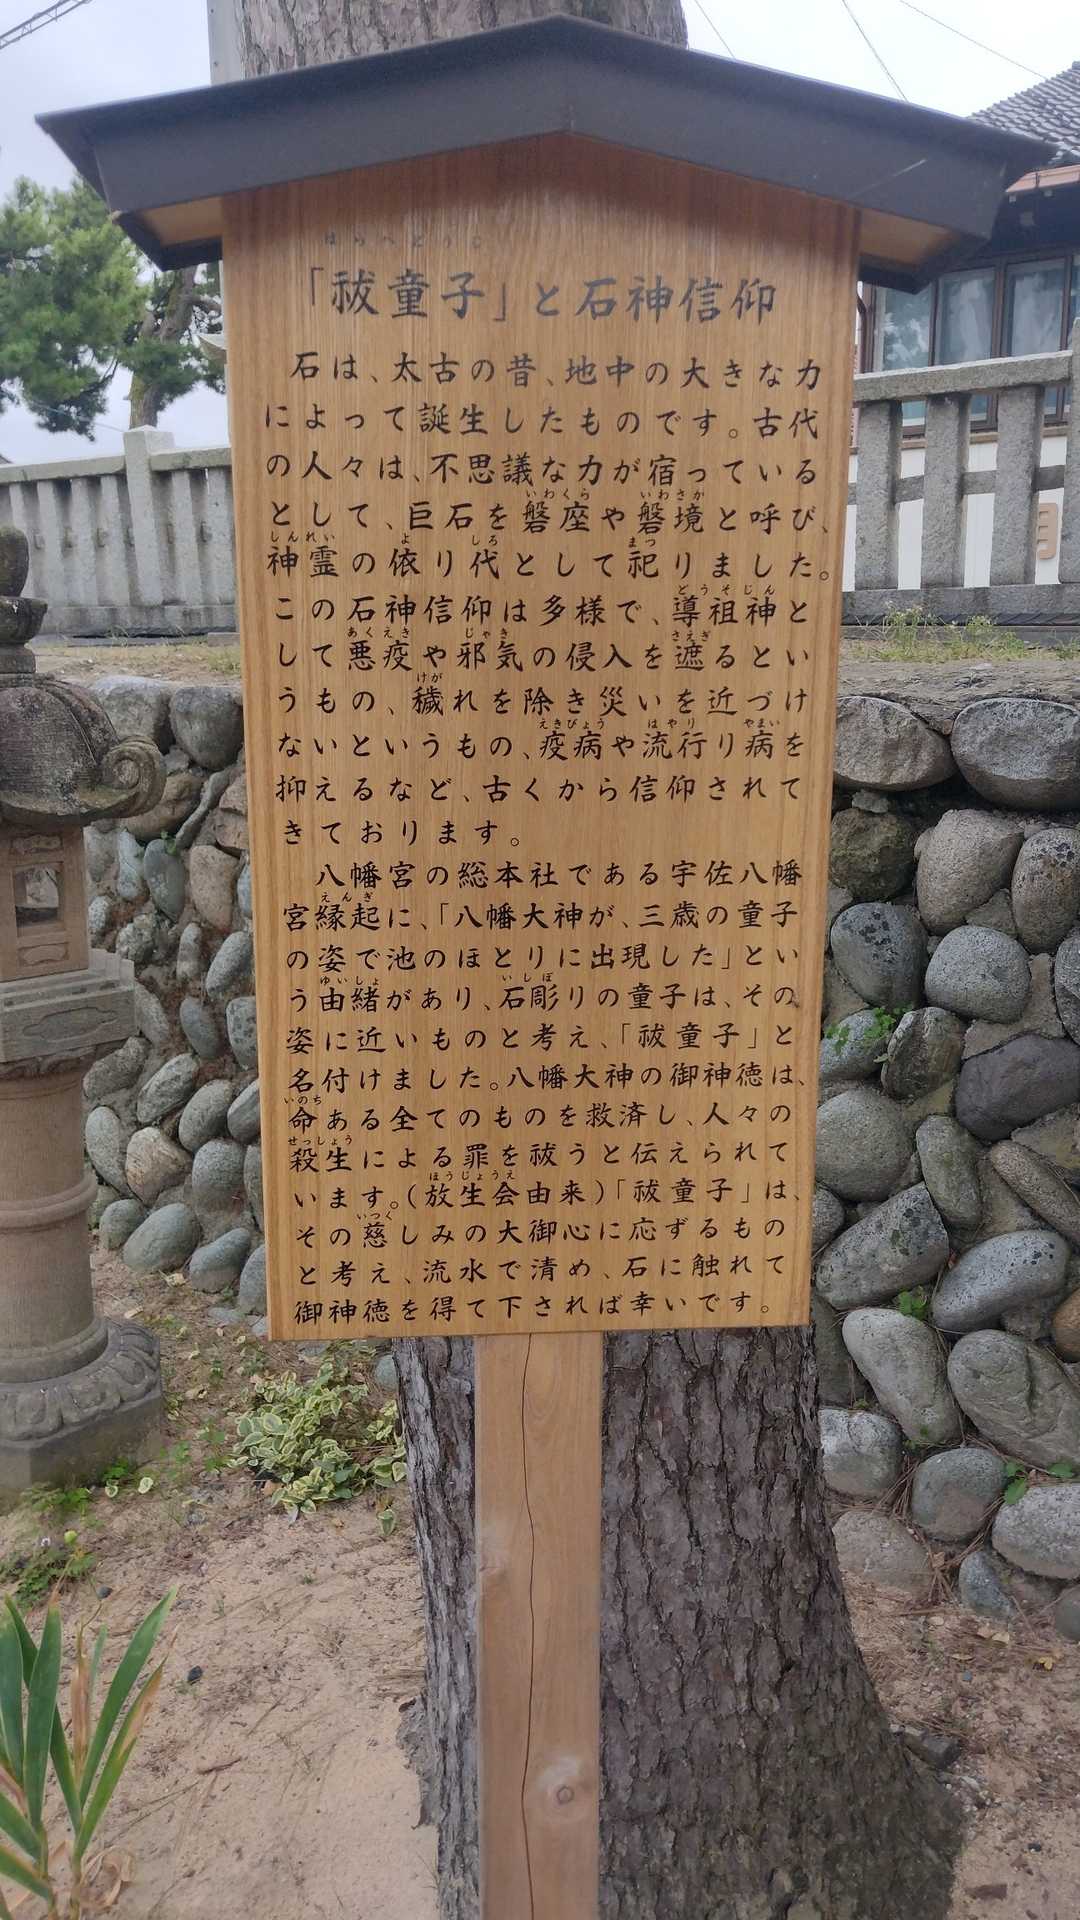 はらへどうじ
「祓童子」と石神信仰
石は、太古の昔、地中の大きな力
によって誕生したものです。古代
の人々は、不思議な力が宿っている
いわくら いわさか
として、巨石を磐座や磐境と呼び、
しんれい よ しろ まつ
神霊の依り代として祀りました。
どうそじん
この石神信仰は多様で、導祖神と
あくえき じゃき さえぎ
して悪疫や邪気の侵入を遮るとい
けが
うもの、穢れを除き災いを近づけ
えきびょう はやり やまい
ないというもの、疫病や流行り病を
抑えるなど、古くから信仰されて
きております。
八幡宮の総本社である宇佐八幡
えんぎ
宮縁起に、「八幡大神が、三歳の童子
の姿で池のほとりに出現した」とい
ゆいしょ いしぼ
う由緒があり、石彫りの童子は、その
姿に近いものと考え、「祓童子」と
名付けました。八幡大神の御神徳は、
いのち
命ある全てのものを救済し、人々の
せっしょう
殺生による罪を祓うと伝えられて
ほうじょうえ
います。(放生会由来)「祓童子」は、
いつく
その慈しみの大御心に応ずるもの
と考え、流水で清め、石に触れて
御神徳を得て下されば幸いです。